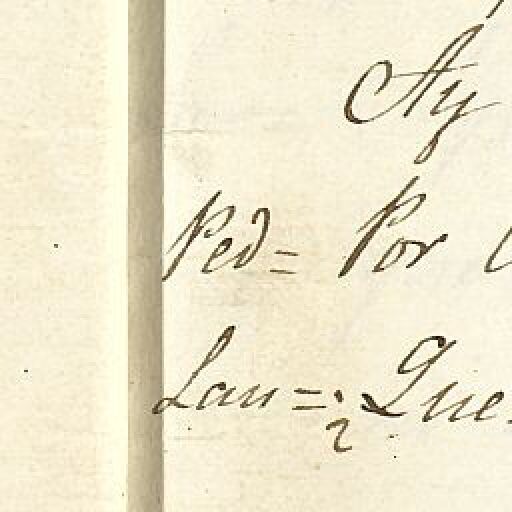 Ay
Ped= Por
Lau=¿Que